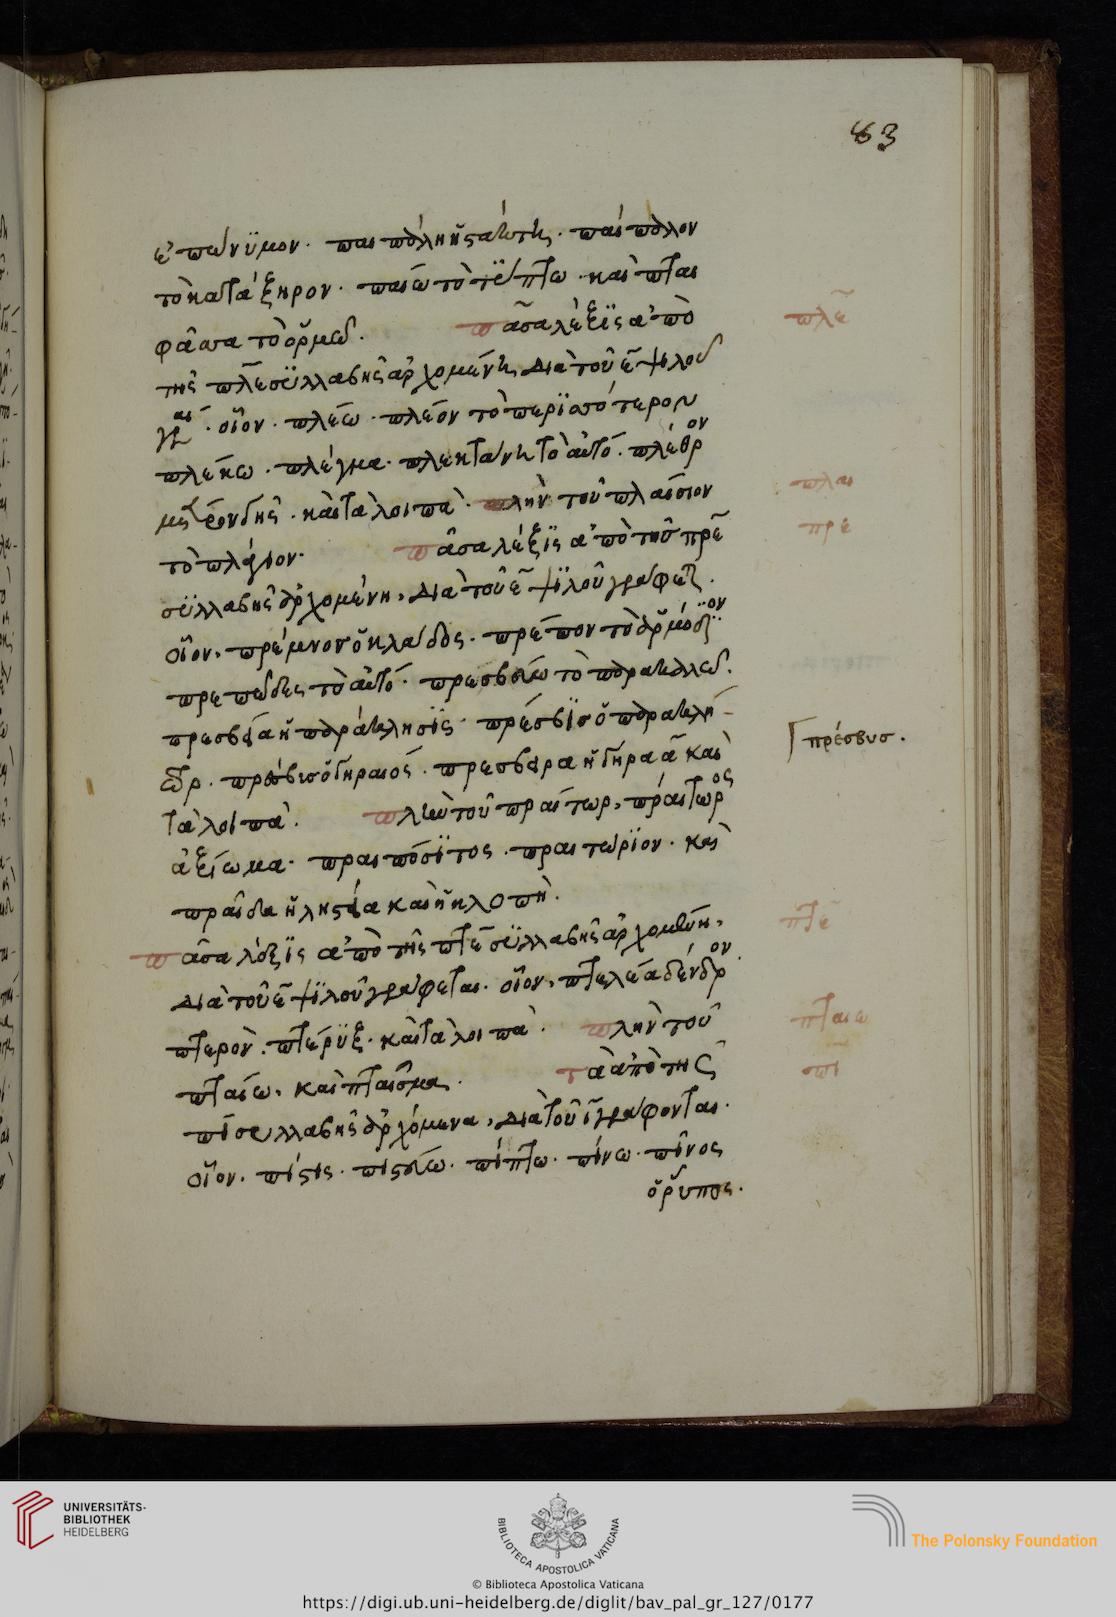 83
ἐπώνϋμον. παιπόλη ἡ
τὸ κατάξηρον. παίω τὸ τύπτω. καὶ
τὸ
πᾶσα λέξϊς ἀπὸ
πλε
τῆς πλε σϋλλαβῆς ἀρχομένη, διὰ τοῦ ε ψιλοῦ
οἷον. πλέω. πλέον τὸ περϊσσότερον
πλέκω. πλέγμα. πλεκτάνη τὸ αὐτό. πλέθρον
καὶ τὰ λοιπά. πλὴν τοῦ πλαίσιον
πλαι
τὸ πλάγιον. πᾶσα λέξϊς ἀπὸ τῆς πρε
πρε
σϋλλαβῆς ἀρχομένη, διὰ τοῦ ε ψϊλοῦ γράφεται.
οἷον. πρέμνον ὁ κλάδος. πρέπον τὸ ἁρμόδϊον
πρεπῶδες τὸ αὐτό. πρεσβεύω τὸ παρακαλῶ.
πρεσβεία ἡ παράκλησϊς. πρέσβϊς ὁ παρακλή
πρέσβυσ.
τωρ. πρέσβισ ὁ γηραιός. ἡ γηραιὰ καὶ
τὰ λοιπά. πλὴν τοῦ πραίτωρ, πραίτωρος
ἀξίωμα. πραιπόσϊτος. πραιτώρϊον. καὶ
πραῖδα ἡ λῃστεία καὶ ἡ κλοπή.
πᾶσα λέξϊς ἀπὸ τῆς πτε σϋλλαβῆς ἀρχομένη,
πτε
διὰ τοῦ ε ψϊλοῦ γράφεται. οἷον, πτελέα δένδρον.
πτερόν. πτέρϋξ. καὶ τὰ λοιπά. πλὴν τοῦ
πταιω
πταίω, καὶ πταῖσμα. τὰ ἀπὸ τῆς
πι
πι συλλαβῆς ἀρχόμενα, διὰ τοῦ ι γράφονται.
οἷον. πίστις. πιστεύω. πίπτω. πίνω. πίνος
ὁ ῥύπος.
UNIVERSITÄTS-
BIBLIOTHEK
HEIDELBERG
BIBLIOTECA APOSTOLICA VATICANA
The Polonsky Foundation
© Biblioteca Apostolica Vaticana
https://digi.ub.uni-heidelberg.de/diglit/bav_pal_gr_127/0177